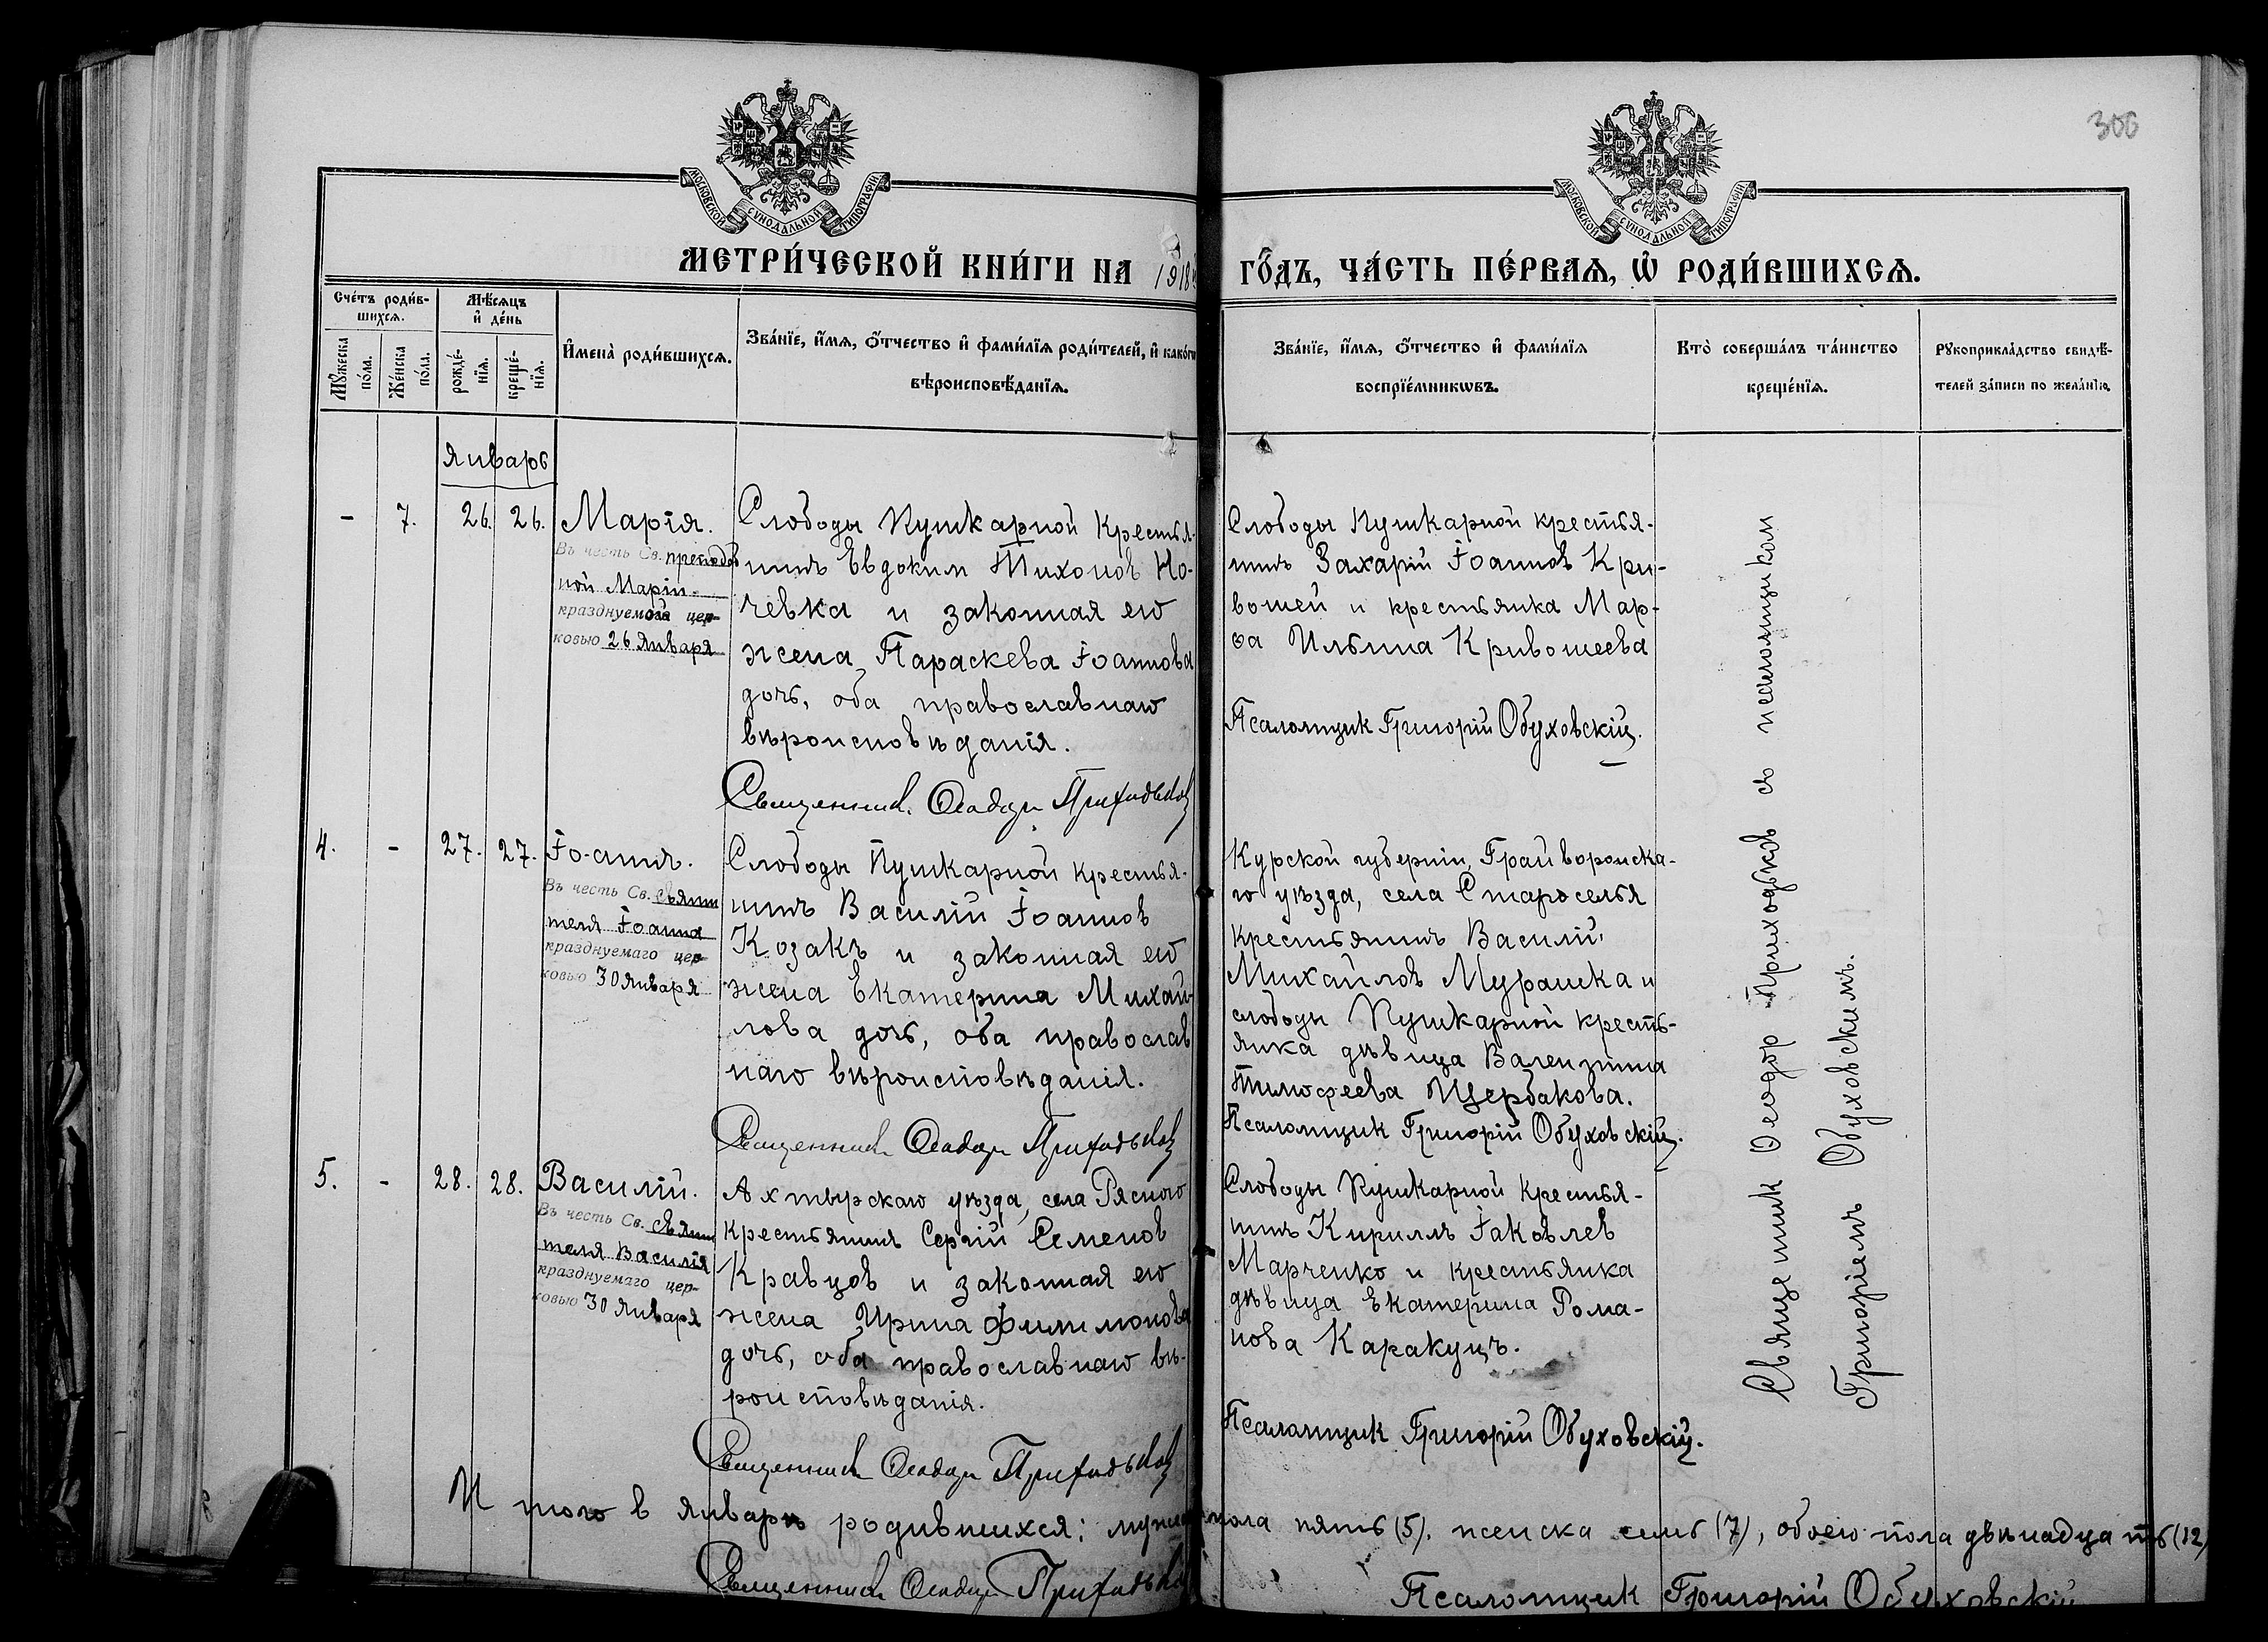 300
МОСКОВСКОЙ СУНОДАЛЬНОЙ ТИПОГРАФІИ
МОСКОВСКОЙ СУНОДАЛЬНОЙ ТИПОГРАФІИ
МЕТРИ́ЧЕСКОЙ КНИ́ГИ НА 1918
ГО́ДЪ, ЧА́СТЬ ПЕ́РВАЯ, Ѡ҆ РОДИ́ВШИХСЯ.
Сче́тъ роди́в-
шихся.
Мꙋ́жеска
по́ла.
Же́нска
по́ла.
Мѣ́сяцъ
и҆ де́нь
рожде́-
нїя.
креще́-
нїя.
И҆мена̀ роди́вшихся.
Зва́нїе, и҆́мя, ѻ҆́тчество и҆ фами́лїя роди́телей, и҆ како́гѡ
вѣроисповѣ́данїя.
Зва́нїе, и҆́мя, ѻ҆́тчество и҆ фами́лїя
воспрїе́мникѡвъ.
Кто̀ соверша́лъ та́инство
креще́нїя.
Рꙋкоприкла́дство свидѣ́-
телей за́писи по жела́нїю.
Январь
- 7. 26. 26. Марія.
Въ честь Св. преподоб
ной Маріи.
празднуемой цер-
ковью 26 Января
Слободы Пушкарной крестья-
нинъ Евдоким Тихонов Но-
чевка и законная его
жена Параскева Іоаннова
дочь, оба православнаго
вѣроисповѣданія.
Священник Ѳеодор Приходьков
Слободы Пушкарной крестья-
нинъ Захарій Іоаннов Кри-
вошей и крестьянка Мар-
ѳа Ильина Кривошеева
Псаломщик Григорій Обуховскій.
4. - 27. 27. Іоаннъ.
Въ честь Св. святи
теля Іоанна
празднуемаго цер-
ковью 30 Января
Слободы Пушкарной крестья-
нинъ Василій Іоаннов
Козакъ и законная его
жена Екатерина Михай-
лова дочь, оба православ
наго вѣроисповѣданія.
Священник Ѳеодор Приходьков
Курской губерніи, Грайворонска-
го уѣзда, села Староселья
крестьянинъ Василій
Михайлов Мурашка и
слободы Пушкарной кресть-
янка дѣвица Валентина
Тимофеева Щербакова.
Псаломщик Григорій Обуховскій.
5. - 28. 28. Василій.
Въ честь Св. святи
теля Василія
празднуемаго цер-
ковью 30 Января
Ахтырскаго уѣзда, села Рясного
крестьянинъ Сергій Семенов
Кравцов и законная его
жена Ирина Филимонова
дочь, оба православнаго вѣ-
роисповѣданія.
Священник Ѳеодор Приходьков
Слободы Пушкарной крестья-
нинъ Кириллъ Іаковлев
Марченко и крестьянка
дѣвица Екатерина Рома-
нова Каракуцъ.
Псаломщик Григорій Обуховскій.
Священник Ѳеодор Приходьков съ псаломщиком
Григоріемъ Обуховскимъ.
Итого в Январѣ родившихся: мужеска пола пять (5), женска семь (7), обоего пола двѣнадцать (12)
Священник Ѳеодор Приходьков
Псаломщик Григорій Обуховскій